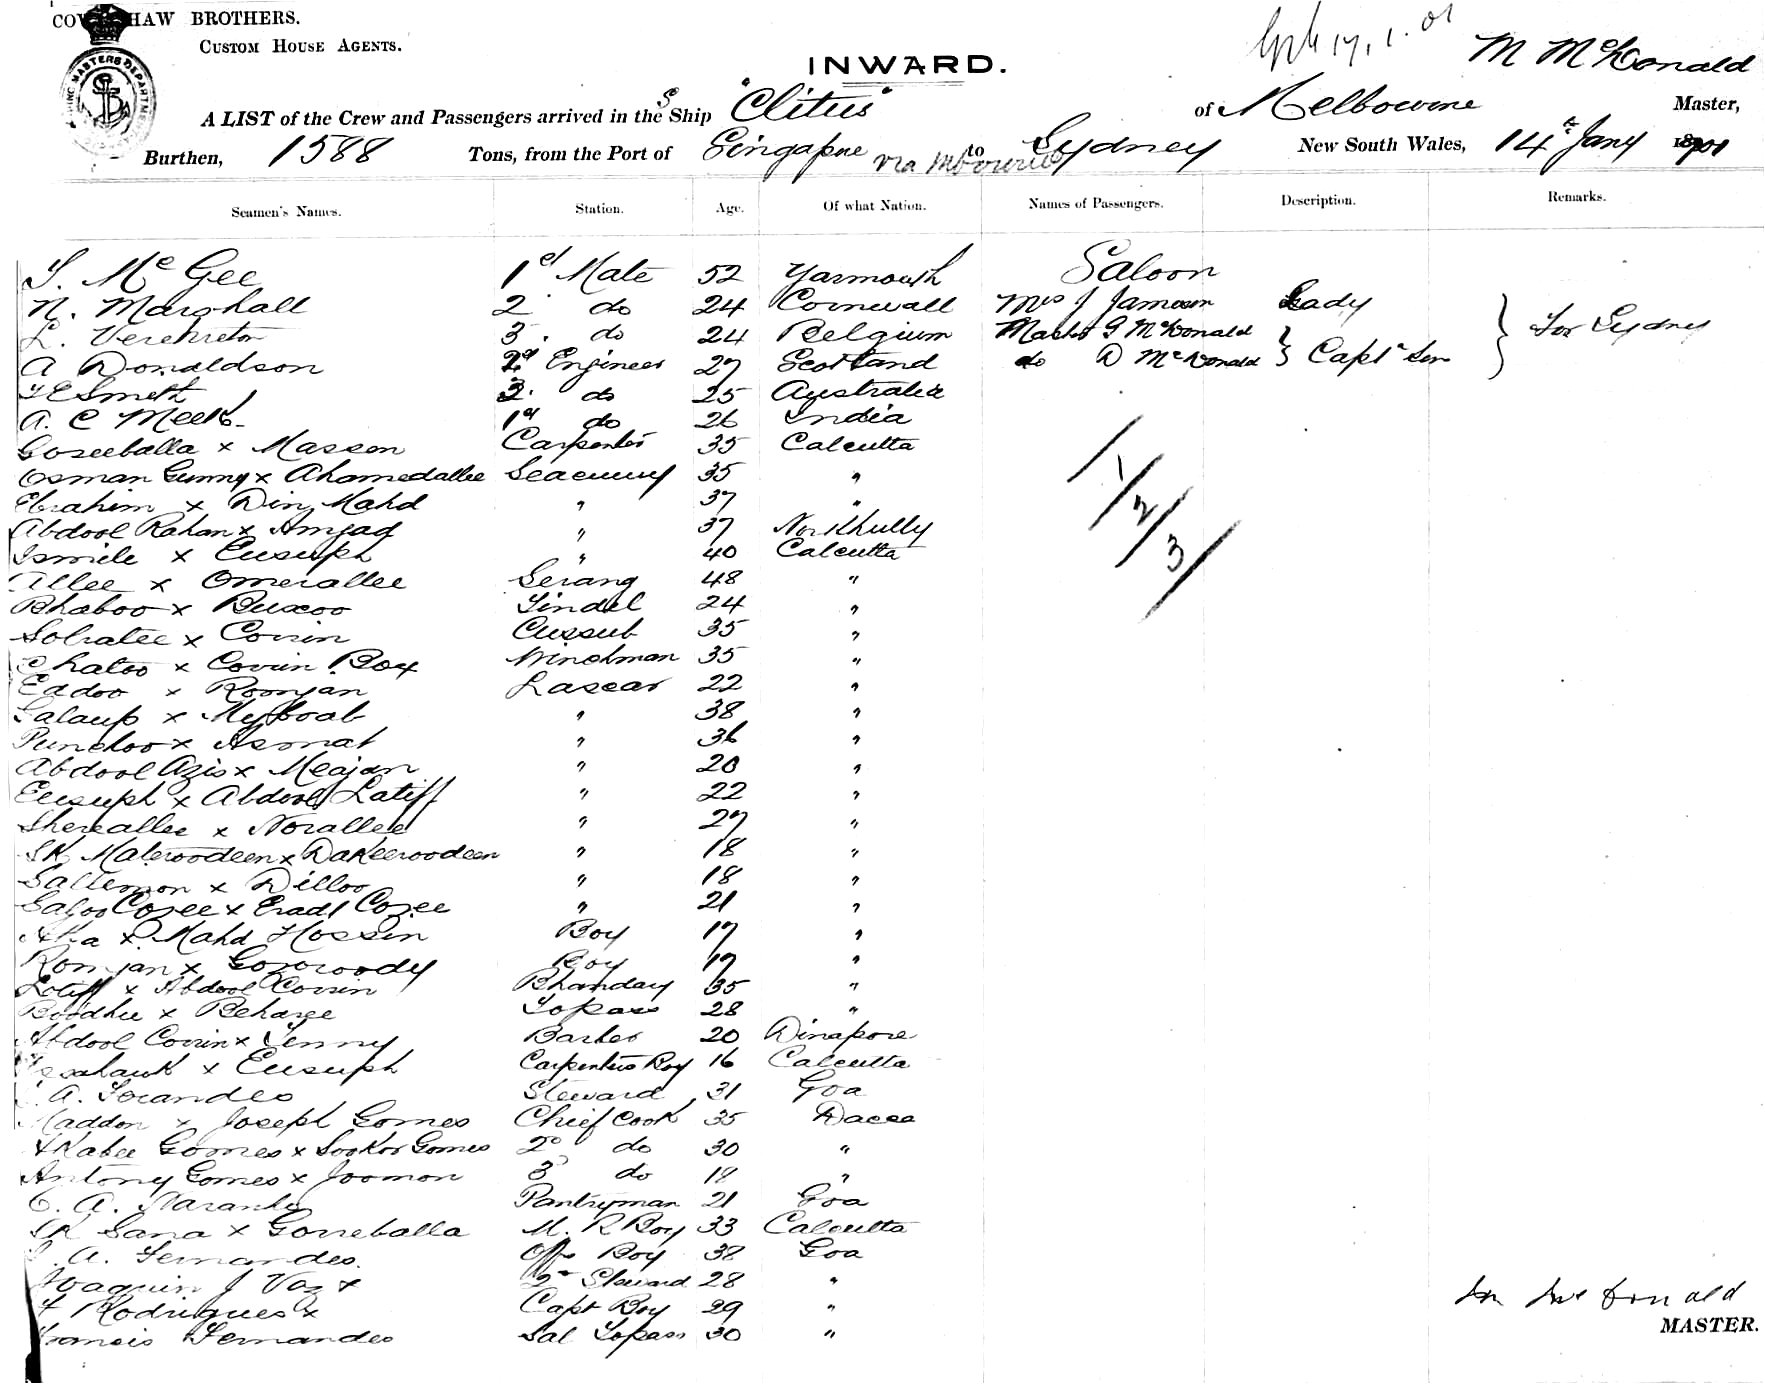 BROTHERS.
CUSTOM HOUSE AGENTS.
INWARD.
17.1.01
M McDonald
A LIST of the Crew and Passengers arrived in the S Ship "Clitus" of Melbourne Master,
Burthen, 1588 Tons, from the Port of Singapore via to Sydney New South Wales, 14th Jany 1901
Seamen's Names. Station. Age. Of what Nation. Names of Passengers. Description. Remarks.
McGee 1st Mate 52 Yarmouth Saloon
N. Marshall 2 do 24 Cornwall Mrs J Lady
L. 3. do 24 Belgium Master G McDonald For Sydney
A Donaldson 2d Engineer 27 Scotland do D McDonald Capts Son
Smith 3. do 25 Australia
A. C Meek 1st do 26 India
Goseeballa x Masson Carpenter 35 Calcutta
Osman Gunny x Ahamedallee Seacunny 35 "
Ebrahim x Din Mahd " 37 "
Abdool Rahan x Amjad " 37
Ismile x Eusuph " 40 Calcutta
Allee x Omerallee Serang 48 "
Bhaboo x Buxoo Tindel 24 "
Sobratee x Corrin Cussub 35 "
Chatoo x Corrim Box Winchman 35 "
Eadoo x Romjan Lascar 22 "
x Myboob " 38 "
Punchoo x Asmat " 36 "
Abdool Azis x Meajan " 20 "
Eusuph x Abdool Latiff " 22 "
Shereallee x Norallee " 27 "
SK. x " 18 "
x Dilloo " 18 "
Cozee x Cozee " 21 "
x Mahd Hossin Boy 17 "
Romjan x Boy 17 "
Lotiff x Abdool Corrin Bhanday 35 "
Boodhu x Beharee Topass 28 "
Abdool Corrin x Barber 20 Dinapore
x Eusuph Carpenters Boy 16 Calcutta
A. Steward 31 Goa
x Joseph Gomes Chief Cook 35 Dacca
Gomes x Gomes 2 do 30 "
Antony Gomes x Joomon 3 do 19 "
C. A. Pantryman 21 Goa
SK Sana x Goneballa M. R Boy 33 Calcutta
A. Fernandes. Offs Boy 38 Goa
Joaquin J Vaz x 2nd Steward 28 "
Rodrigues x Capt Boy 29 "
Francis Fernandes Sal Topass 30 "
1/2/3
M McDonald
MASTER.